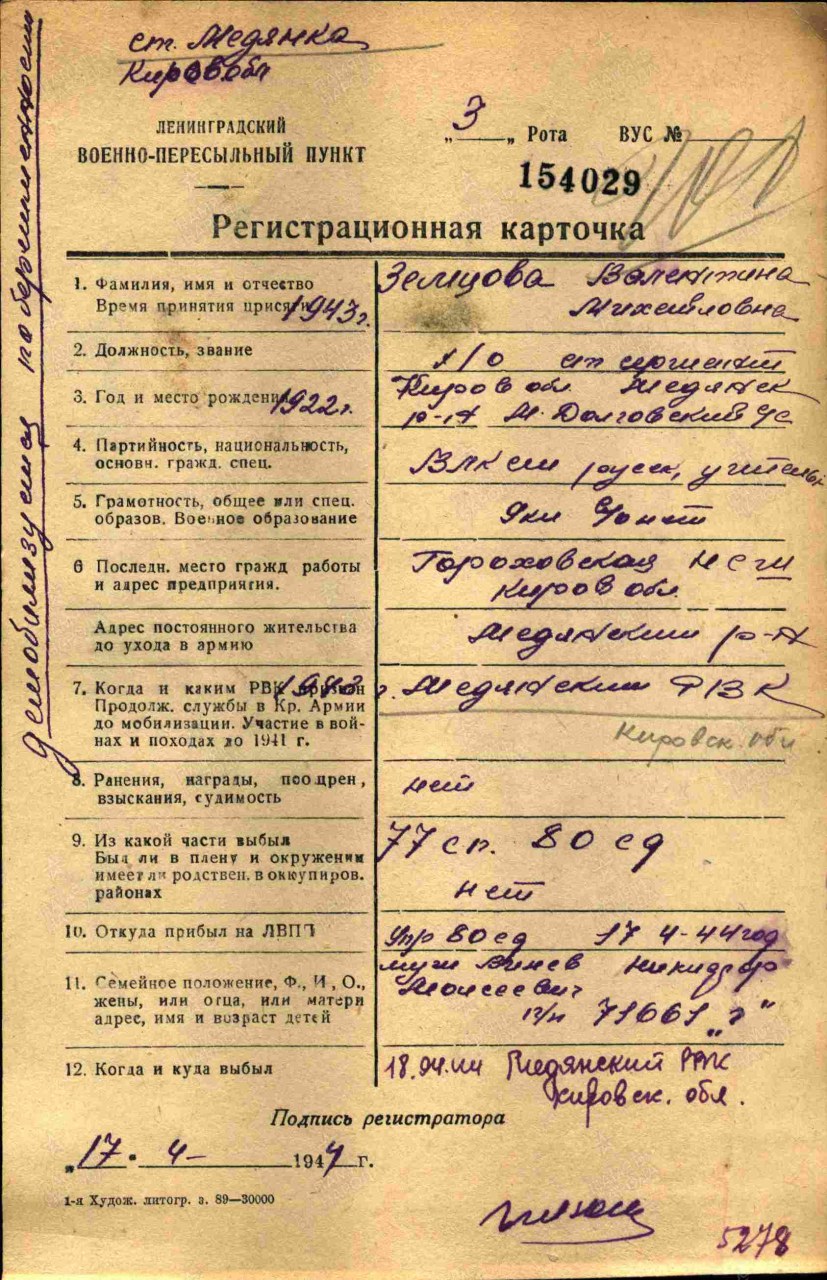 ст. Медянка
Киров обл
демобилизуется по беременности
ЛЕНИНГРАДСКИЙ
ВОЕННО-ПЕРЕСЫЛЬНЫЙ ПУНКТ
„ 3 „ Рота ВУС №
154029
Регистрационная карточка
1. Фамилия, имя и отчество
Время принятия присяги 1943 г.
Земцова Валентина
Михайловна
2. Должность, звание
х/о ст сержант
3. Год и место рождения 1922 г.
Киров обл Медянск
р-н М. Долговский с/с
4. Партийность, национальность,
основн. гражд. спец.
ВЛКСМ русск, учитель
5. Грамотность, общее или спец.
образов. Военное образование
6 Последн. место гражд работы
и адрес предприятия.
Гороховская НСШ
Киров обл.
Адрес постоянного жительства
до ухода в армию
Медянский р-н
7. Когда и каким РВК призван
Продолж. службы в Кр. Армии
до мобилизации. Участие в вой-
нах и походах до 1941 г.
г. Медянский РВК
Кировск. обл
8. Ранения, награды, поощрен,
взыскания, судимость
нет
9. Из какой части выбыл
Был ли в плену и окружении
имеет ли родствен. в оккупиров.
районах
77 сп. 80 сд
нет
10. Откуда прибыл на ЛВПП
Упр 80 сд 17 4-44 год
11. Семейное положение, Ф., И, О.,
жены, или отца, или матери
адрес, имя и возраст детей
муж Никифор
Моисеевич
п/п 71661 „г"
12. Когда и куда выбыл
18.04.44 Медянский РВК
Кировск. обл.
Подпись регистратора
„17" 4- 1944 г.
1-я Худож. литогр. з. 89—30000
5278